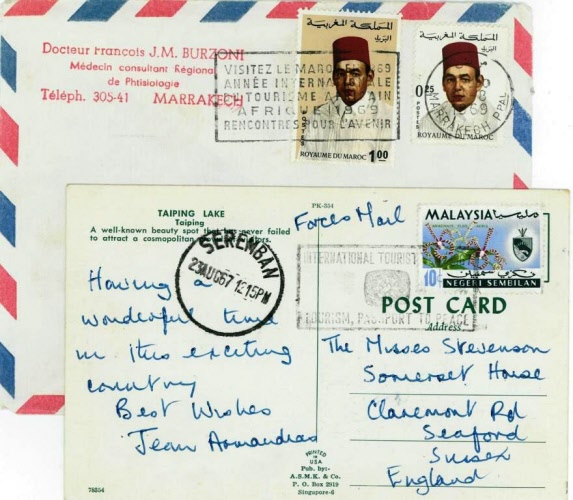 Docteur François J.M. BURZONI
Médecin consultant Régional
de Phtisiologie
Téléph. 305-41 MARRAKECH
VISITEZ LE MAROC 1969
ANNÉE INTERNATIONALE
DU TOURISME AFRICAIN
AFRIQUE 1969
RENCONTRES POUR L'AVENIR
المملكة المغربية
البريد
ROYAUME DU MAROC 1.00
المملكة المغربية
البريد
0.25
POSTES
ROYAUME DU MAROC
MARRAKECH PPAL
1969
TAIPING LAKE
Taiping
A well-known beauty spot that has never failed
to attract a cosmopolitan
PK-354
Forces Mail
SEREMBAN
23AUG67 12:15PM
INTERNATIONAL TOURIST
TOURISM, PASSPORT TO PEACE
MALAYSIA مليسيا
10c
نكري سمبيلن
NEGERI SEMBILAN
POST CARD
Address
Having a
wonderful time
in this exciting
country
Best Wishes
Jean
The Misses Stevenson
Somerset House
Claremont Rd
Seaford
Sussex
England
PRINTED
IN
USA
Pub. by:-
A.S.M.K. & Co.
P. O. Box 2919
Singapore-6
78354